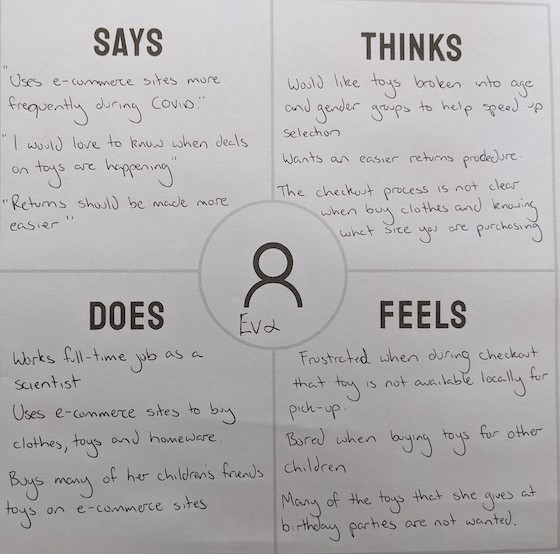 SAYS
"Uses e-commerce sites more
frequently during COVID."
"I would love to know when deals
on toys are happening"
"Returns should be made more
easier"
THINKS
Would like toys broken into age
and gender groups to help speed up
selection
Wants an easier returns prodedure.
The checkout process is not clear
when buy clothes and knowing
what size you are purchasing
Eva
DOES
Works full-time job as a
scientist
Uses e-commerce sites to buy
clothes, toys and homeware.
Buys many of her children's friends
toys on e-commerce sites
FEELS
Frustrated when during checkout
that toy is not available locally for
pick-up.
Bored when buying toys for other
children
Many of the toys that she gives at
birthday parties are not wanted.